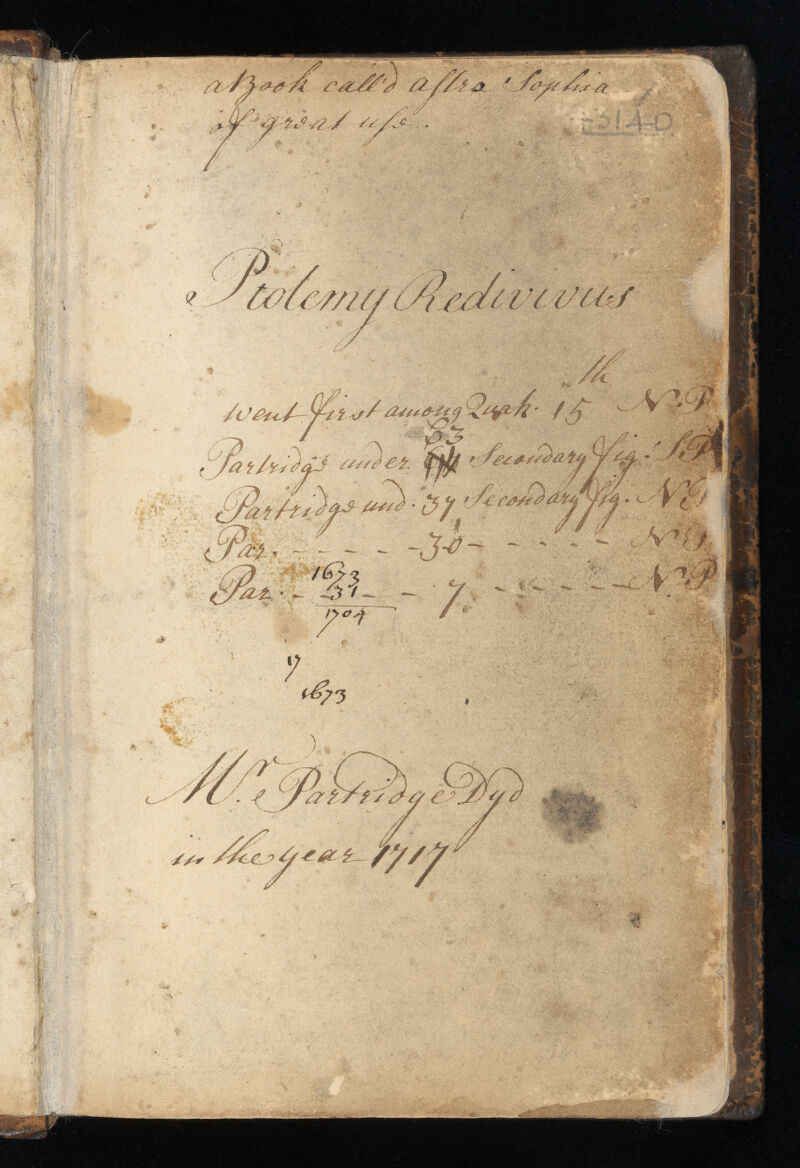 a Book call'd astro Sophia
of great use.
3140
Ptolemy Redivivus
went first among Quak. 15th N.P
63
Partridge under Secondary fig. S.P
Partridge und. 37 Secondary fig. N
Par. - - - - - 30 - - - - - - N
Par. - - - - - 7 - - - - - N.P
1673
31
1704
17
1673
Mr. Partridge Dyd
in the year 1717